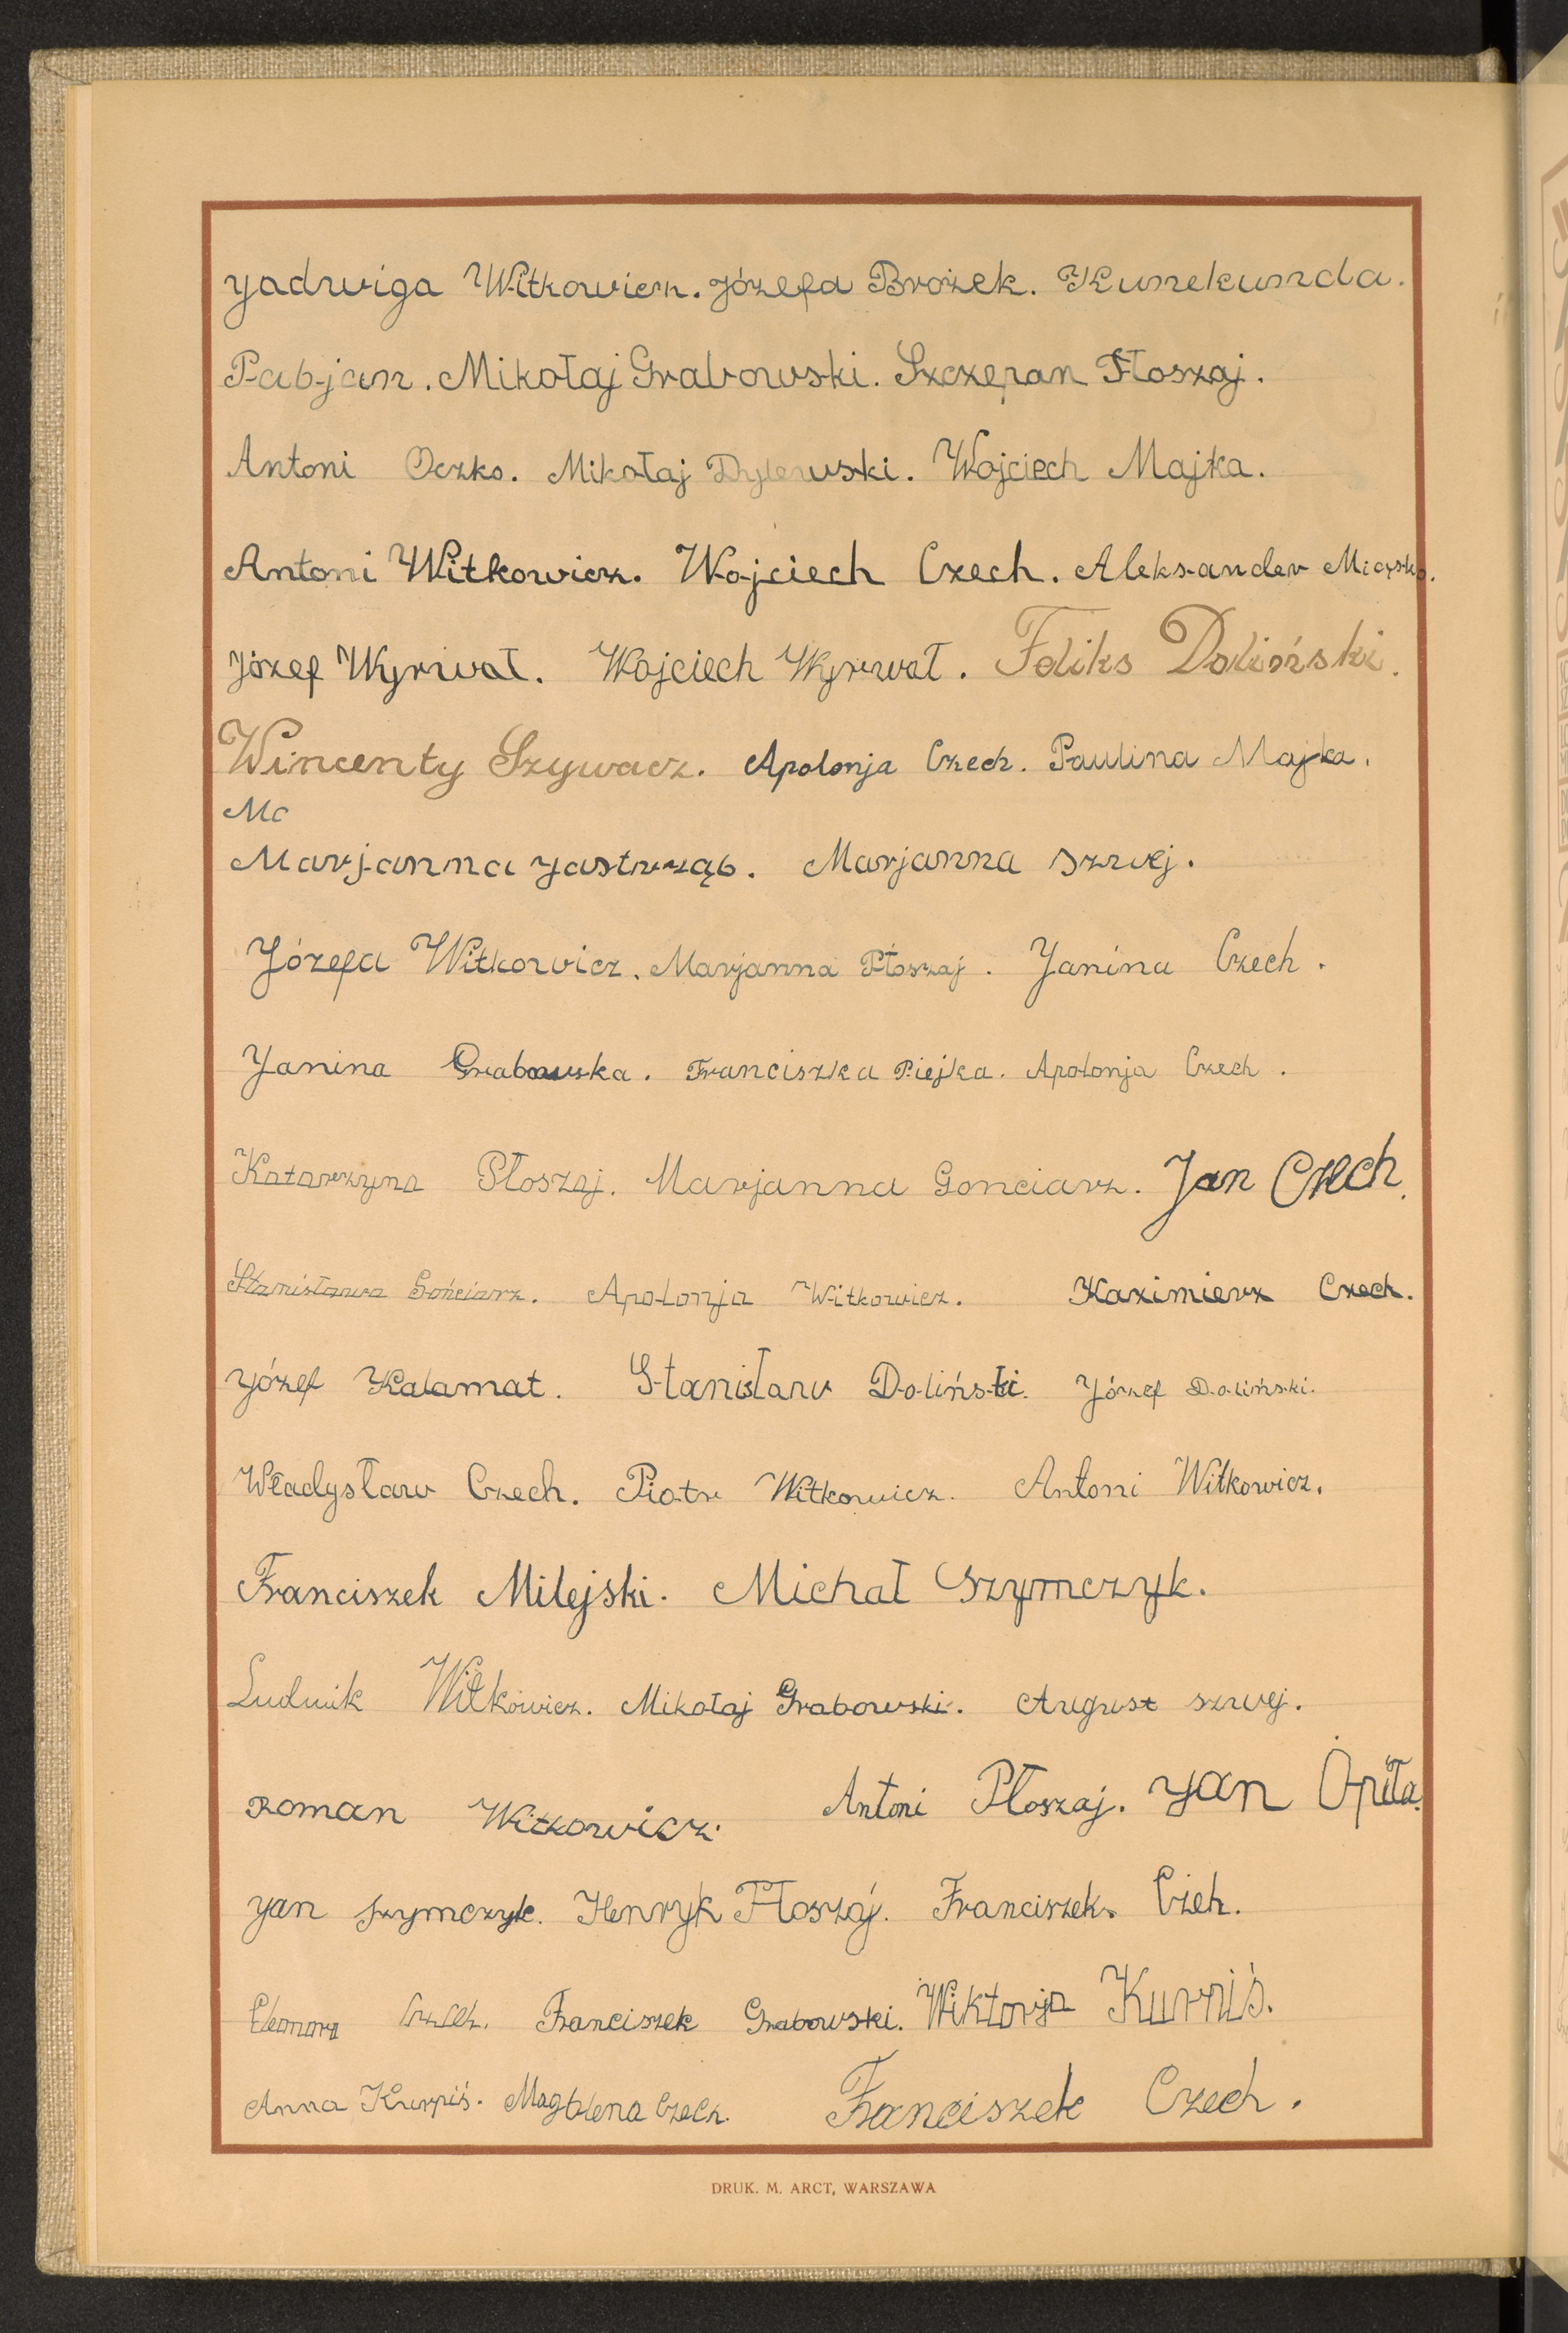 Jadwiga Witkowicz. Józefa Brożek. Kunekunda.
Pabjan. Mikołaj Grabowski. Szczepan Płoszaj.
Antoni Oczko. Mikołaj Dylewski. Wojciech Majka.
Antoni Witkowicz. Wojciech Czech. Aleksander
Józef Wyrwał. Wojciech Wyrwał. Feliks Doliński.
Wincenty Szywacz. Apolonja Czech. Paulina Majka.
Ma
Marjanna Jastrząb. Marjanna szwej.
Józefa Witkowicz. Marjanna Płoszaj. Janina Czech.
Janina Grabowska. Franciszka Piejka. Apolonja Czech.
Katarzyna Płoszaj. Marjanna Gonciarz. Jan Czech.
Stanisława Gońciarz. Apolonja Witkowicz. Kazimierz Czech.
Józef Kalamat. Stanisław Doliński. Józef Doliński.
Władysław Czech. Piotr Witkowicz. Antoni Witkowicz.
Franciszek Milejski. Michał Szymczyk.
Ludwik Witkowicz. Mikołaj Grabowski. August szwej.
Roman Witkowicz. Antoni Płoszaj. Jan Opiła.
Jan Szymczyk. Henryk Płoszaj. Franciszek. Czeh.
Eleonora Czech. Franciszek Grabowski. Wiktorja Kurpiś.
Anna Kurpiś. Magdlena Czech. Franciszek Czech.
DRUK. M. ARCT, WARSZAWA